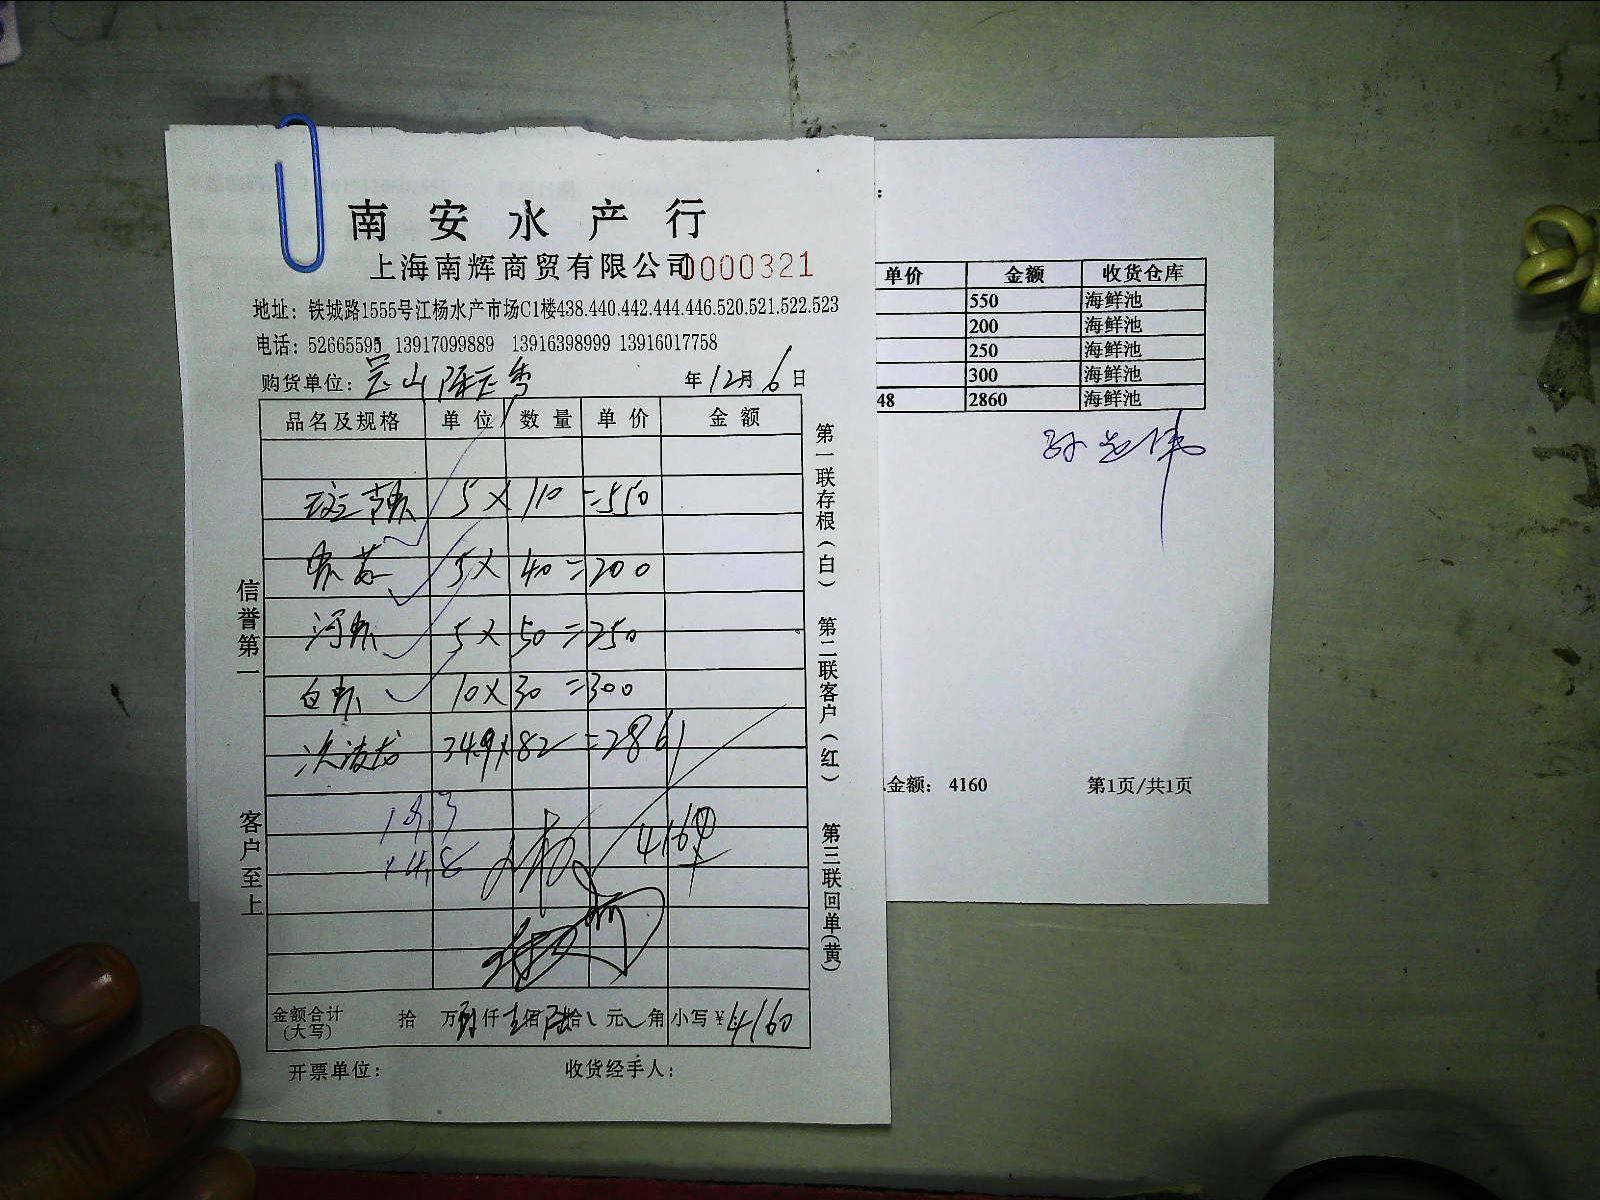 南安水产行
上海南辉商贸有限公司0000321
地址：铁城路1555号江杨水产市场C1楼438.440.442.444.446.520.521.522.523
电话：52665595 13917099889 13916398999 13916017758
购货单位： 年12月6日
品名及规格 单位 数量 单价 金额
斑节虾 5×110=550
5×40=200
河虾 5×50=250
白虾 10×30=300
次波龙 34.9×82=2861
19.3
4160
金额合计(大写) 拾 万肆仟壹佰陆拾 元 角 小写￥4160
开票单位： 收货经手人：
信誉第一
客户至上
第一联存根(白)
第二联客户(红)
第三联回单(黄)
单价 金额 收货仓库
550 海鲜池
200 海鲜池
250 海鲜池
300 海鲜池
48 2860 海鲜池
金额： 4160 第1页/共1页